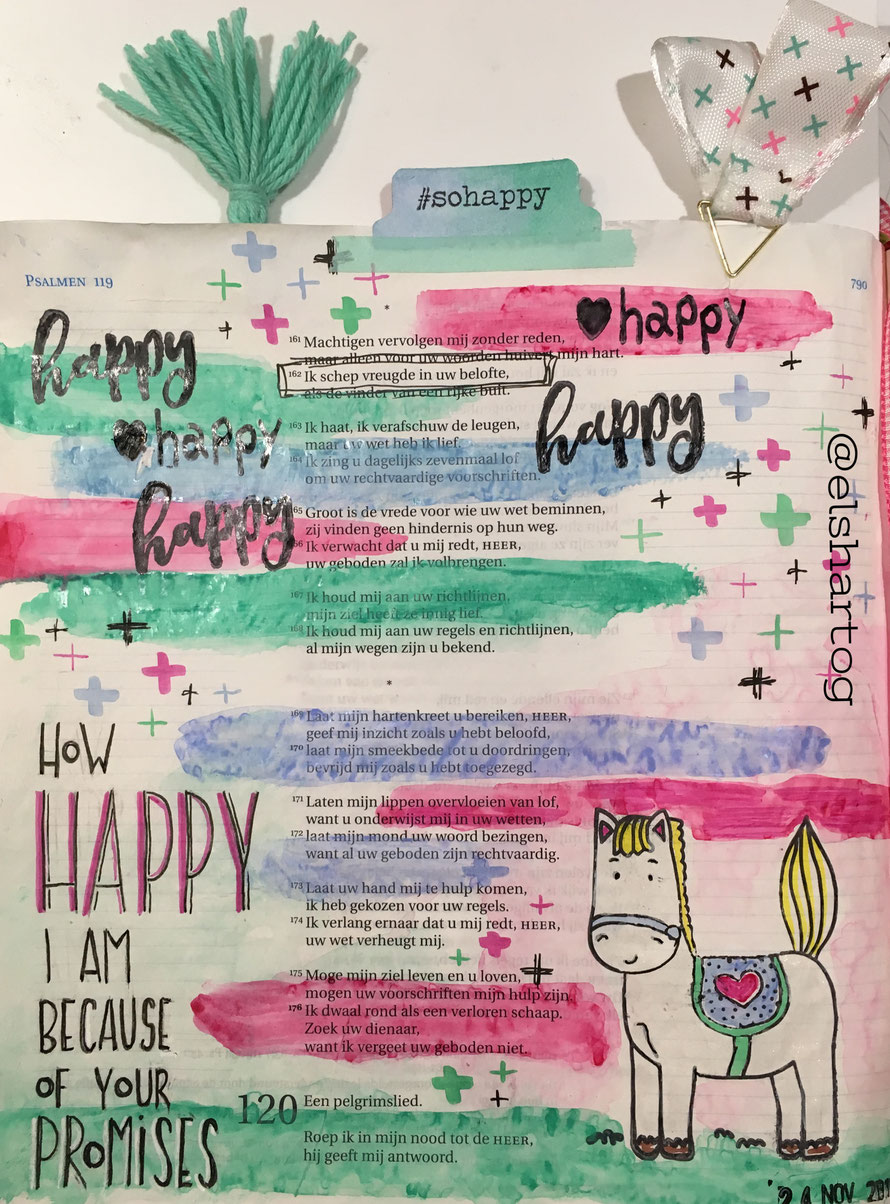 #sohappy
PSALMEN 119
790
*
happy
happy
happy
happy
happy
@elshartog
161 Machtigen vervolgen mij zonder reden,
maar alleen voor uw woorden huivert mijn hart.
162 Ik schep vreugde in uw belofte,
als de vinder van een rijke buit.
163 Ik haat, ik verafschuw de leugen,
maar uw wet heb ik lief.
164 Ik zing u dagelijks zevenmaal lof
om uw rechtvaardige voorschriften.
165 Groot is de vrede voor wie uw wet beminnen,
zij vinden geen hindernis op hun weg.
166 Ik verwacht dat u mij redt, HEER,
uw geboden zal ik volbrengen.
167 Ik houd mij aan uw richtlijnen,
mijn ziel heeft ze innig lief.
168 Ik houd mij aan uw regels en richtlijnen,
al mijn wegen zijn u bekend.
*
169 Laat mijn hartenkreet u bereiken, HEER,
geef mij inzicht zoals u hebt beloofd,
170 laat mijn smeekbede tot u doordringen,
bevrijd mij zoals u hebt toegezegd.
171 Laten mijn lippen overvloeien van lof,
want u onderwijst mij in uw wetten,
172 laat mijn mond uw woord bezingen,
want al uw geboden zijn rechtvaardig.
173 Laat uw hand mij te hulp komen,
ik heb gekozen voor uw regels.
174 Ik verlang ernaar dat u mij redt, HEER,
uw wet verheugt mij.
175 Moge mijn ziel leven en u loven,
mogen uw voorschriften mijn hulp zijn.
176 Ik dwaal rond als een verloren schaap.
Zoek uw dienaar,
want ik vergeet uw geboden niet.
HOW
HAPPY
I AM
BECAUSE
OF YOUR
PROMISES
120 Een pelgrimslied.
Roep ik in mijn nood tot de HEER,
hij geeft mij antwoord.
24 NOV